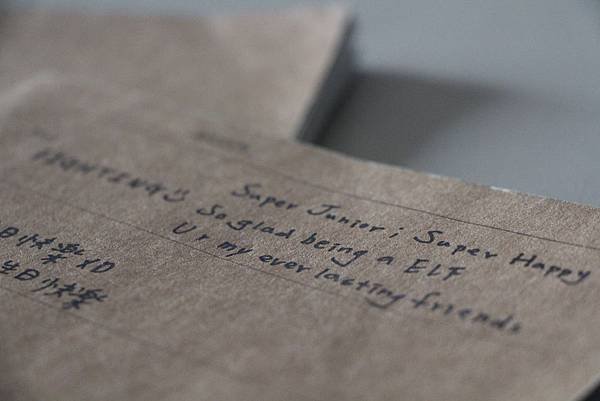 FIGHTING!!
Super Junior ; Super Happy
So glad being a ELF
U r my ever lasting friends
日快樂 XD
生日快樂